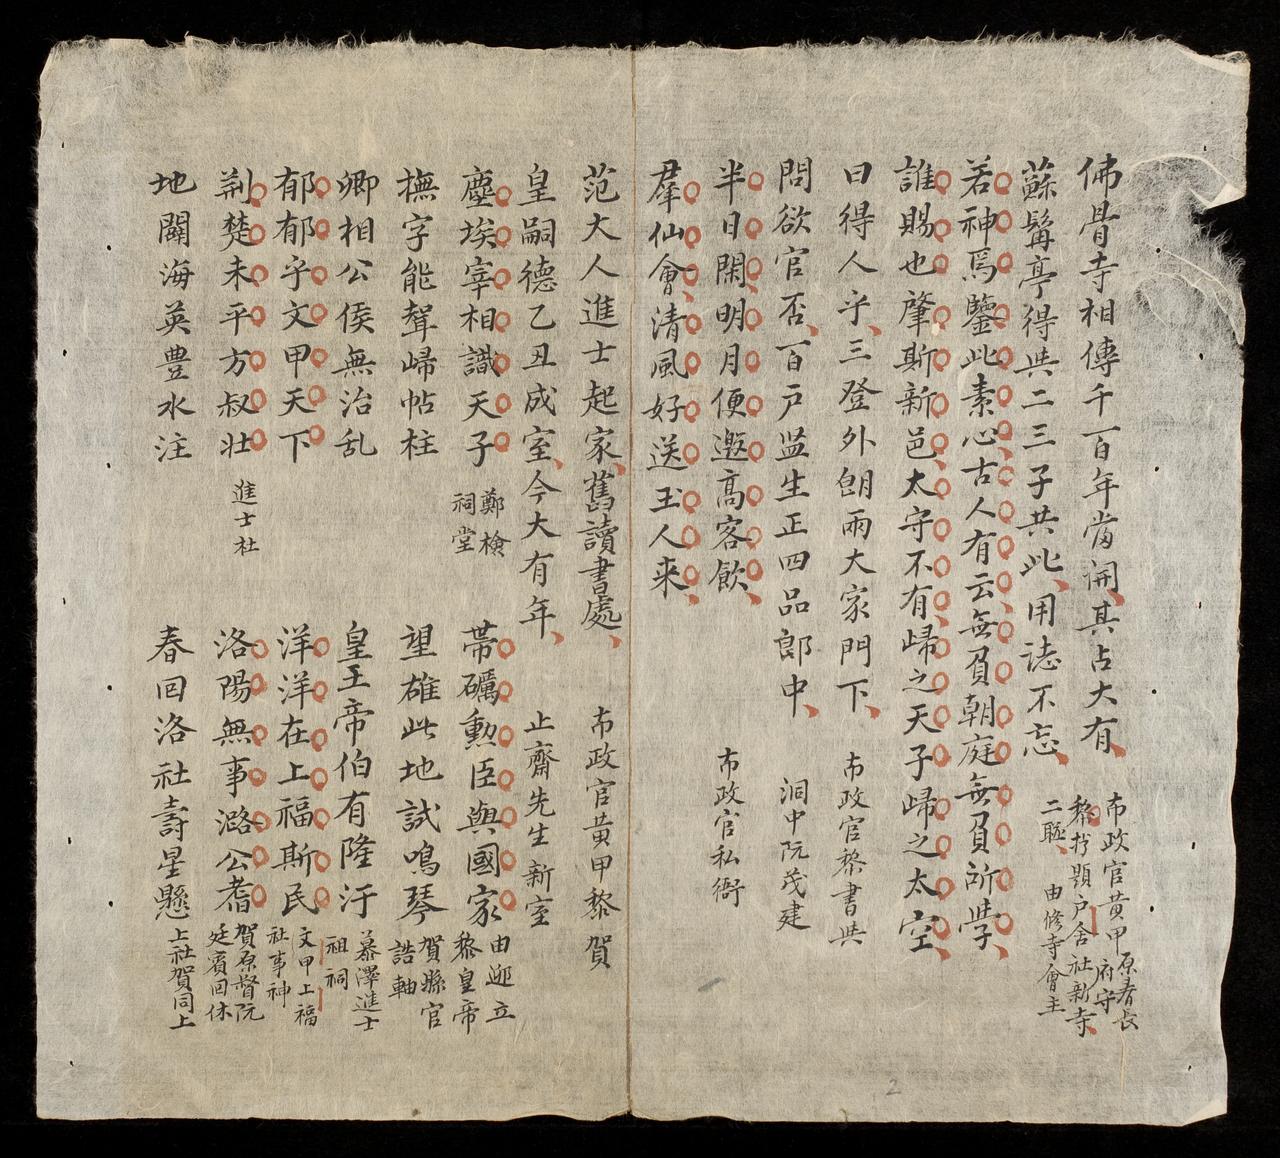 佛骨寺相傳千百年當開其占大有
蘇髯亭得與二三子共此用誌不忘
市政官黄甲
黎抄題戶舍社新寺
二聯 由修寺會主
若神焉鑒此素心古人有云無負朝庭無負所學
誰賜也肇斯新邑太守不有歸之天子歸之太空
曰得人乎三登外朗兩大家門下
市政官黎書與
問欲官否百戶监生正四品郎中
洞中阮茂建
半日閑明月便邀高客飲
市政官私衙
羣仙會清風好送玉人来
范大人進士起家舊讀書處
市政官黄甲黎賀
皇嗣德乙丑成室今大有年
止齋先生新室
塵埃宰相識天子
鄭檢
祠堂
帶礪勲臣與國家
由迎立
黎皇帝
撫字能聲歸帖柱
望雄此地試鳴琴
賀縣官
誥軸
卿相公侯無治乱
皇王帝伯有隆汙
慕澤進士
祖祠
郁郁乎文甲天下
洋洋在上福斯民
文甲上福
社事神
荆楚未平方叔壯
進士社
洛陽無事潞公耆
賀原督阮
廷賓回休
地闢海英豊水注
春回洛社壽星懸
上社賀同上